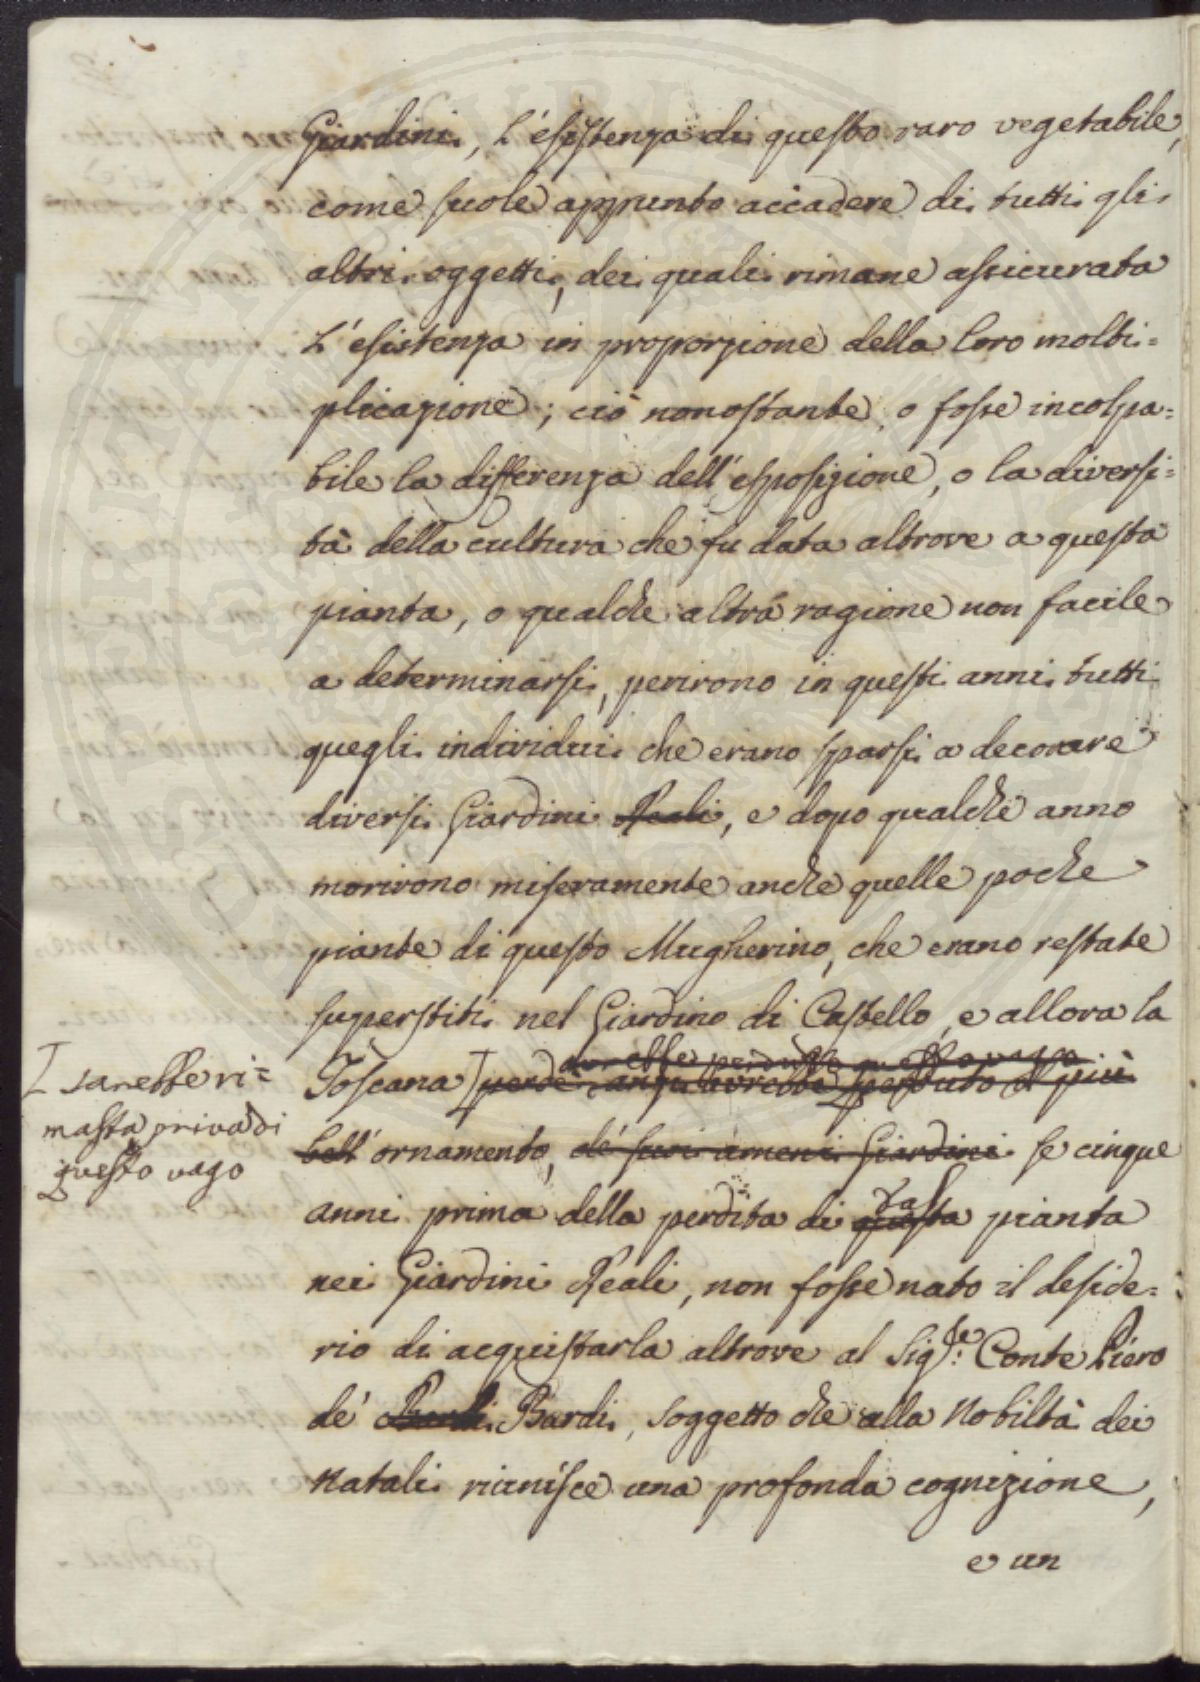 Giardini, l'esistenza di questo raro vegetabile,
come suole appunto accadere di tutti gli
altri oggetti, dei quali rimane assicurata
l'esistenza in proporzione della loro molti=
plicazione; ciò nonostante, o fosse incolpa=
bile la differenza dell'esposizione, o la diversi=
tà della cultura che fu data altrove a questa
pianta, o qualche altra ragione non facile
a determinarsi, perirono in questi anni tutti
quegli individui che erano sparsi a decorare
diversi Giardini Reali, e dopo qualche anno
morirono miseramente anche quelle poche
piante di questo Mugherino, che erano restate
superstiti nel Giardino di Castello, e allora la
avrebbe perduto questo vago
Toscana perde avrebbe perduto il più
sarebbe ri=
masta priva di
questo vago
bell'ornamento, de' suoi ameni Giardini se cinque
tal
anni prima della perdita di questa pianta
nei Giardini Reali, non fosse nato il deside=
rio di acquistarla altrove al Sig.re Conte Piero
de' Bardi Bardi, soggetto che alla Nobiltà dei
Natali riunisce una profonda cognizione,
e un